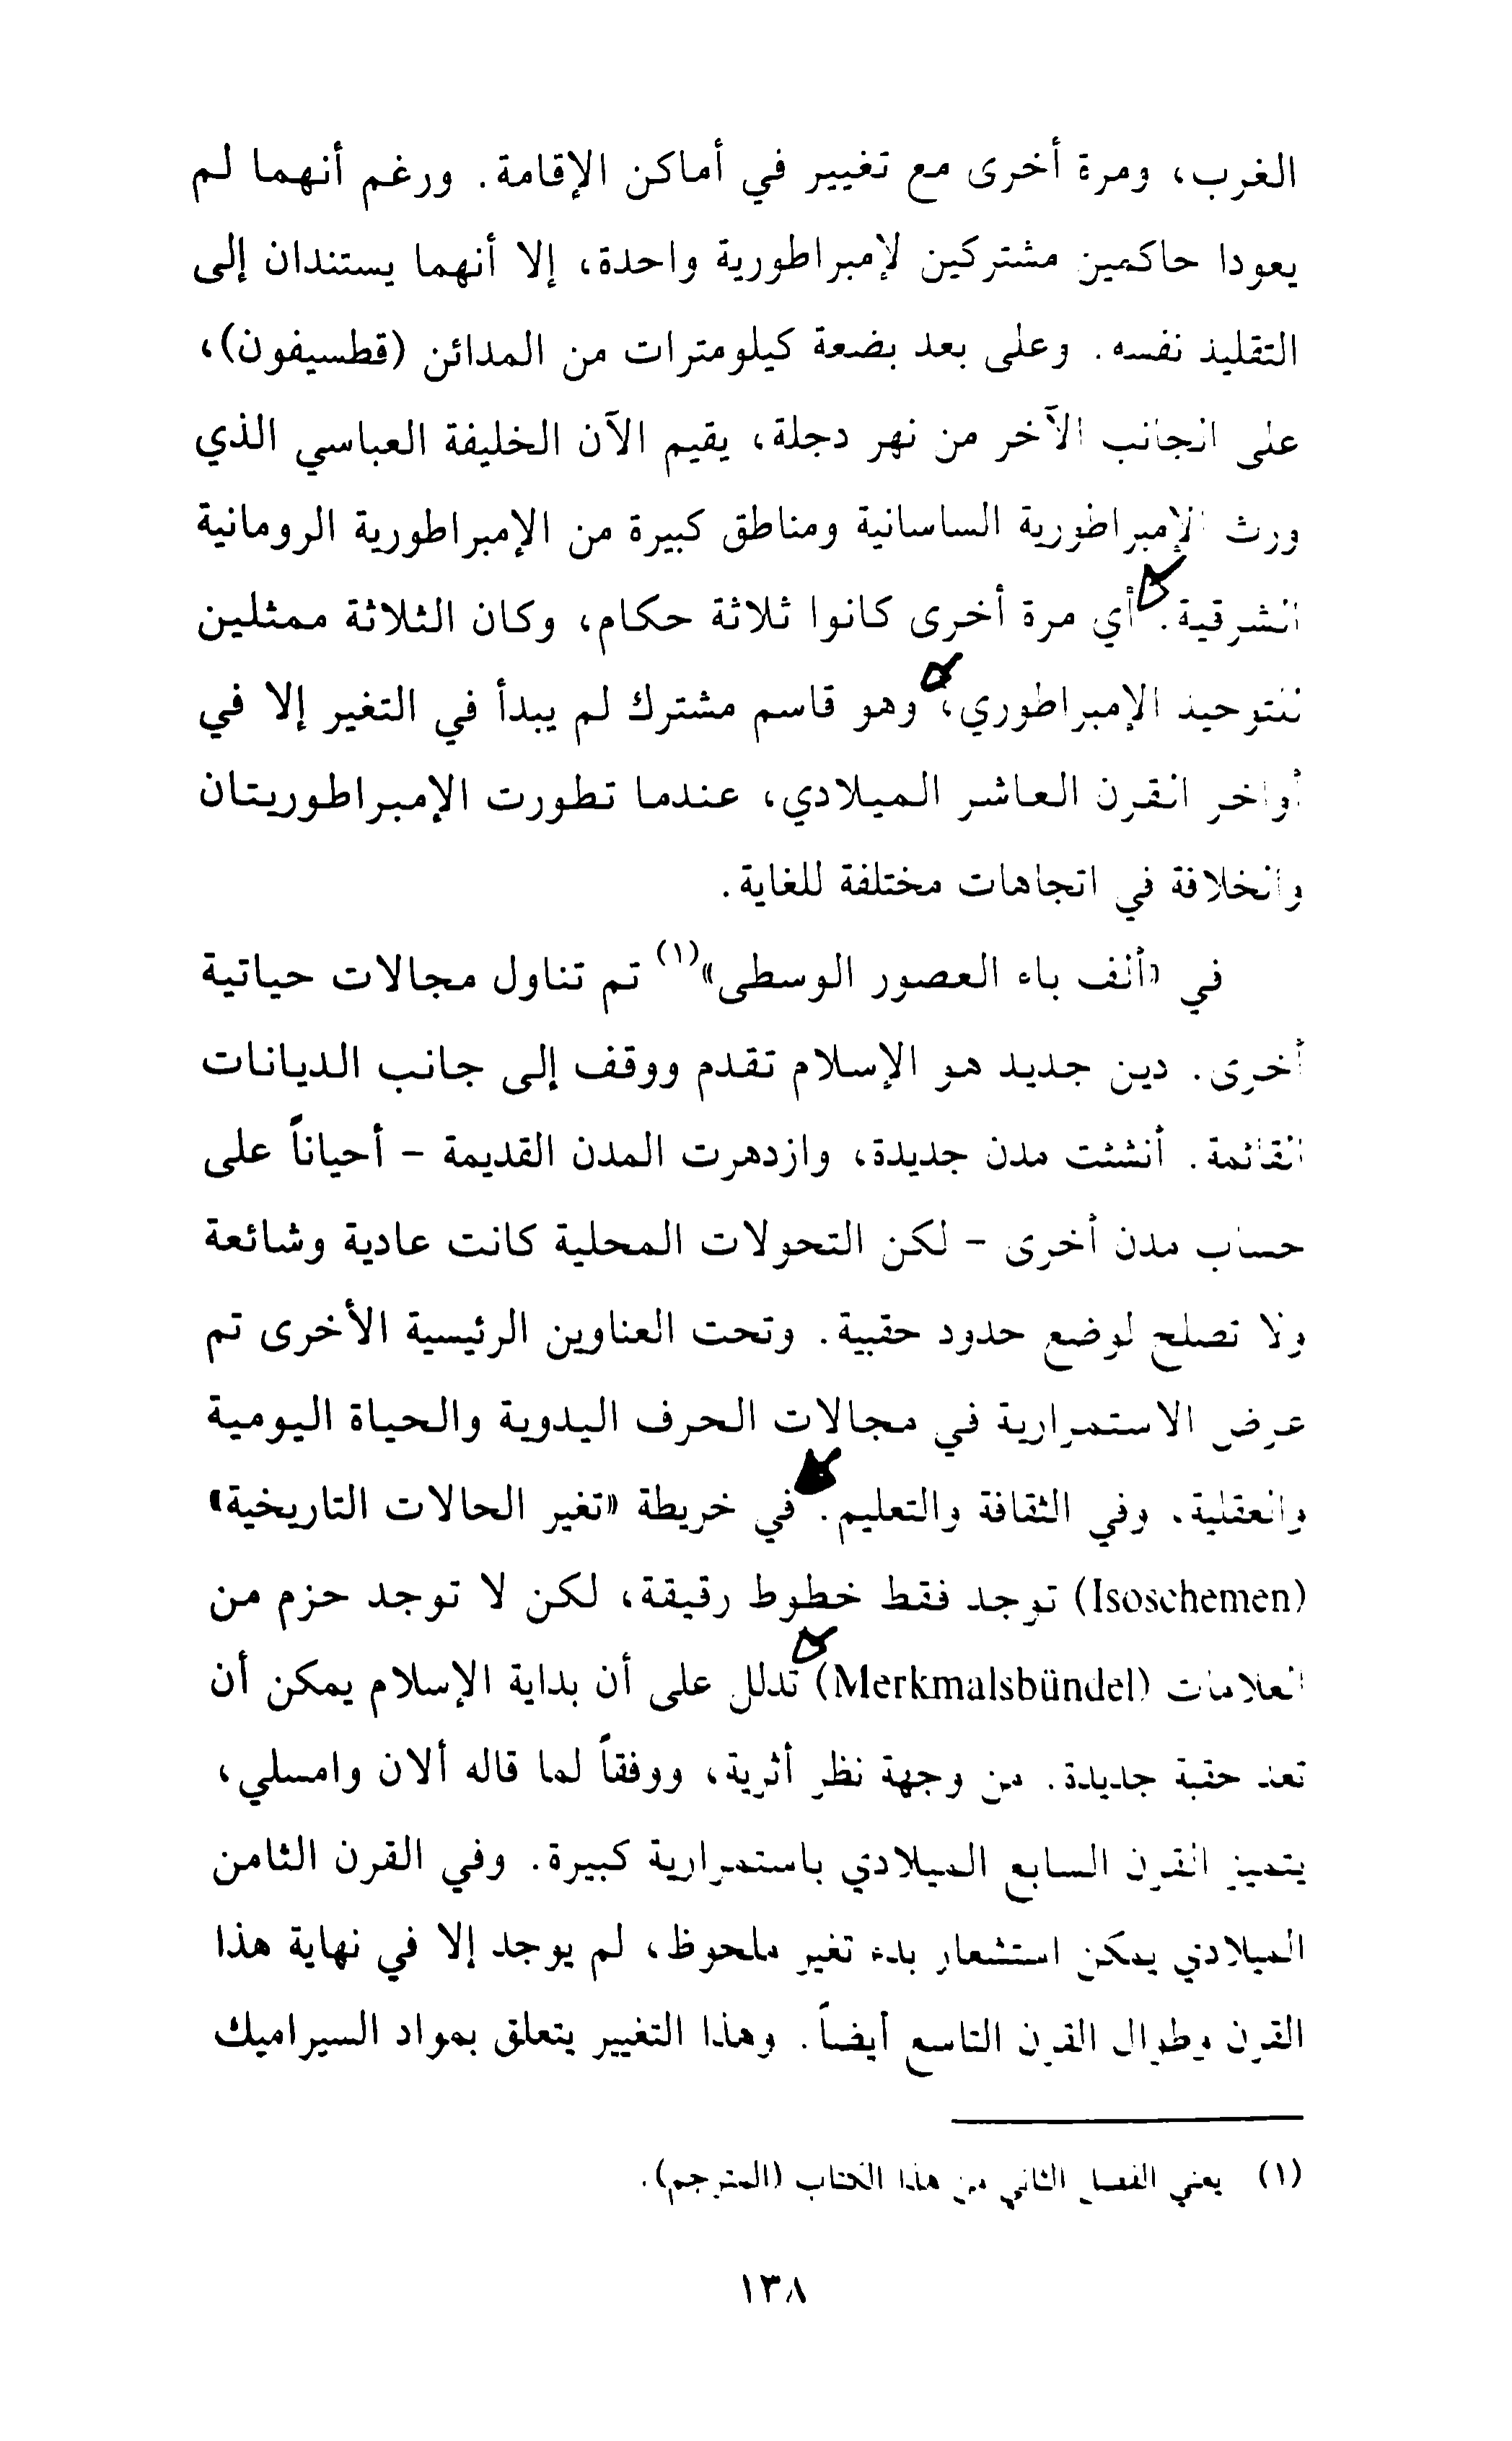 الغرب، ومرة أخرى مع تغيير في أماكن الإقامة. ورغم أنهما لم
يعودا حاكمين مشتركين لإمبراطورية واحدة، إلا أنهما يستندان إلى
التقليد نفسه. وعلى بعد بضعة كيلومترات من المدائن (قطسيفون)،
على الجانب الآخر من نهر دجلة، يقيم الآن الخليفة العباسي الذي
ورث الإمبراطورية الساسانية ومناطق كبيرة من الإمبراطورية الرومانية
الشرقية. أي مرة أخرى كانوا ثلاثة حكام، وكان الثلاثة ممثلين
للتوحيد الإمبراطوري، وهو قاسم مشترك لم يبدأ في التغير إلا في
أواخر القرن العاشر الميلادي، عندما تطورت الإمبراطوريتان
والخلافة في اتجاهات مختلفة للغاية.
في «ألف باء العصور الوسطى»(١) تم تناول مجالات حياتية
أخرى. دين جديد هو الإسلام تقدم ووقف إلى جانب الديانات
القائمة. أنشئت مدن جديدة، وازدهرت المدن القديمة - أحياناً على
حساب مدن أخرى - لكن التحولات المحلية كانت عادية وشائعة
ولا تصلح لوضع حدود حقبية. وتحت العناوين الرئيسية الأخرى تم
عرض الاستمرارية في مجالات الحرف اليدوية والحياة اليومية
والعقلية، وفي الثقافة والتعليم. في خريطة «تغير الحالات التاريخية»
(Isoschemen) توجد فقط خطوط رقيقة، لكن لا توجد حزم من
العلامات (Merkmalsbündel) تدلل على أن بداية الإسلام يمكن أن
تعد حقبة جديدة. من وجهة نظر أثرية، ووفقاً لما قاله ألان وامسلي،
يتميز القرن السابع الميلادي باستمرارية كبيرة. وفي القرن الثامن
الميلادي يمكن استشعار بدء تغير ملحوظ، لم يوجد إلا في نهاية هذا
القرن وطوال القرن التاسع أيضاً. وهذا التغيير يتعلق بمواد السيراميك
(١) يعني الفصل الثاني من هذا الكتاب (المترجم).
١٣٨